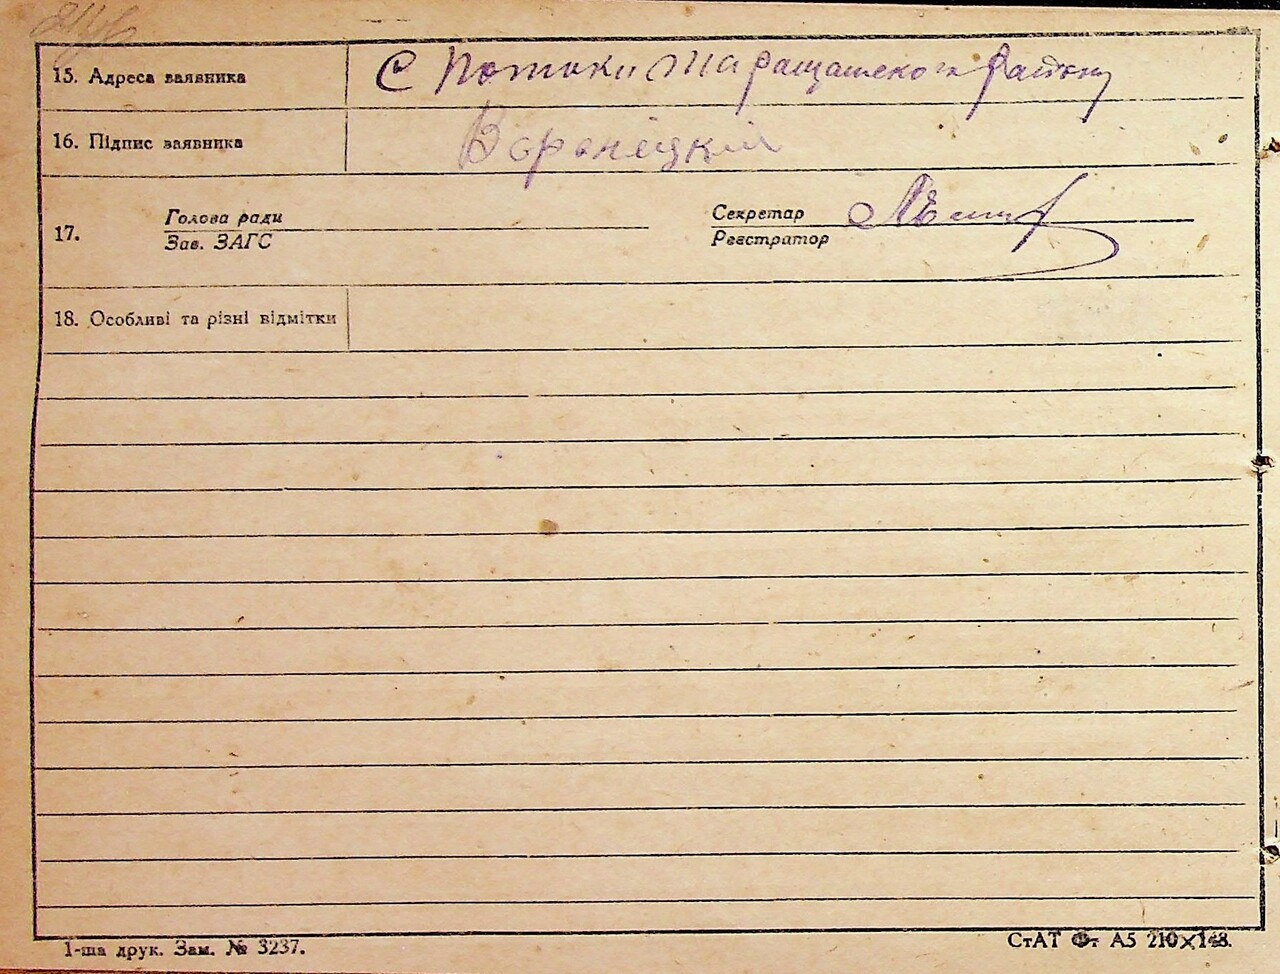 15. Адреса заявника С Потоки Таращанского району
16. Підпис заявника Воронецкий
17. Голова ради
Зав. ЗАГС
Секретар
Реєстратор
18. Особливі та різні відмітки
1-ша друк. Зам. № 3237.
СтАТ Фт А5 210×148.